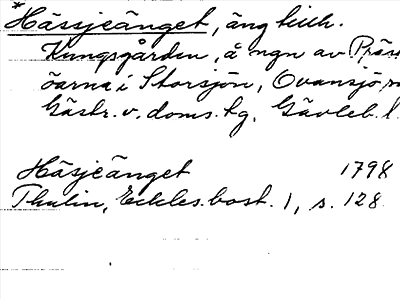 *Hässjeänget, äng tillh.
Kungsgården, å ngn av Präst
öarna i Storsjön, Ovansjö
Gästr. v. doms. tg, Gävleb. l.
Häsjeänget 1798
Thulin, Eckles. bost. 1, s. 128